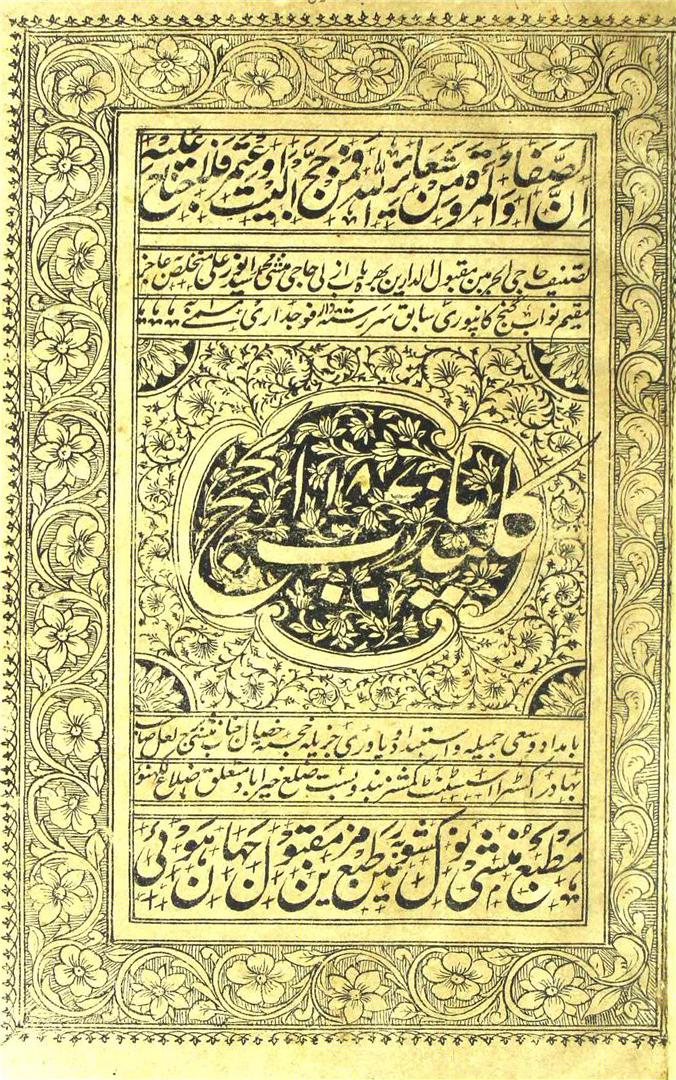 اِنَّ الصَّفَا وَالْمَرْوَةَ مِنْ شَعَآئِرِ اللّٰهِ فَمَنْ حَجَّ الْبَيْتَ اَوِ اعْتَمَرَ فَلَا جُنَاحَ عَلَيْهِ
تصنیف حاجی الحرمین مقبول الدارین بہرہ یاب ازلی حاجی منشی محمد سید انور علی متخلص بہ عاجز
مقیم نواب گنج کانپوری سابق سررشتہ دار فوجداری
کلید باب الحج
۱۲۸
بامداد و سعی جمیلہ و استبداد و یاوری جزیلہ خجستہ خصال جناب منشی لعل صاحب
بہادر اکسٹرا اسسٹنٹ کمشنر بندوبست ضلع خیراباد متعلق ضلاع لکھنو
مطبع منشی نول کشور میں طبع مزین مقبول جہان ہوئی